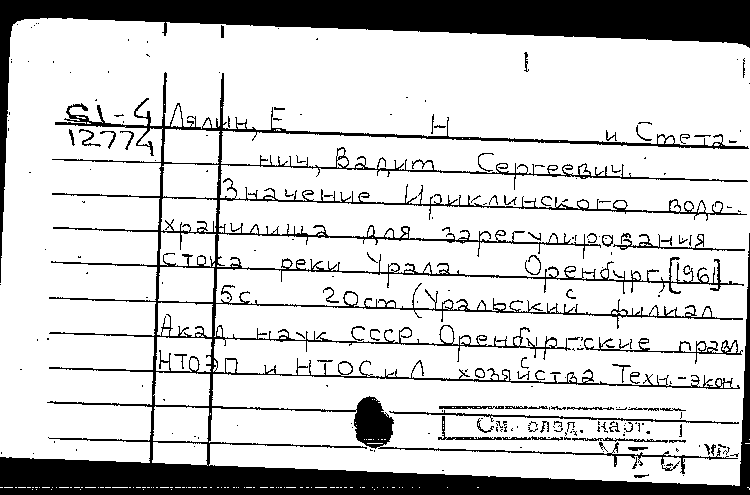 61-4 Лялин, Е Н и Стета-
12774
нич, Вадит Сергеевич.
Значение Ириклинского водо-
хранилища для зарегулирования
стока реки Урала. Оренбург, [1961].
5с. 20 см. (Уральский филиал
Акад. наук СССР. Оренбургские правл.
НТОЭП и НТОС и Л хозяйства. Техн.-экон.
См. след. карт.
4 X 61